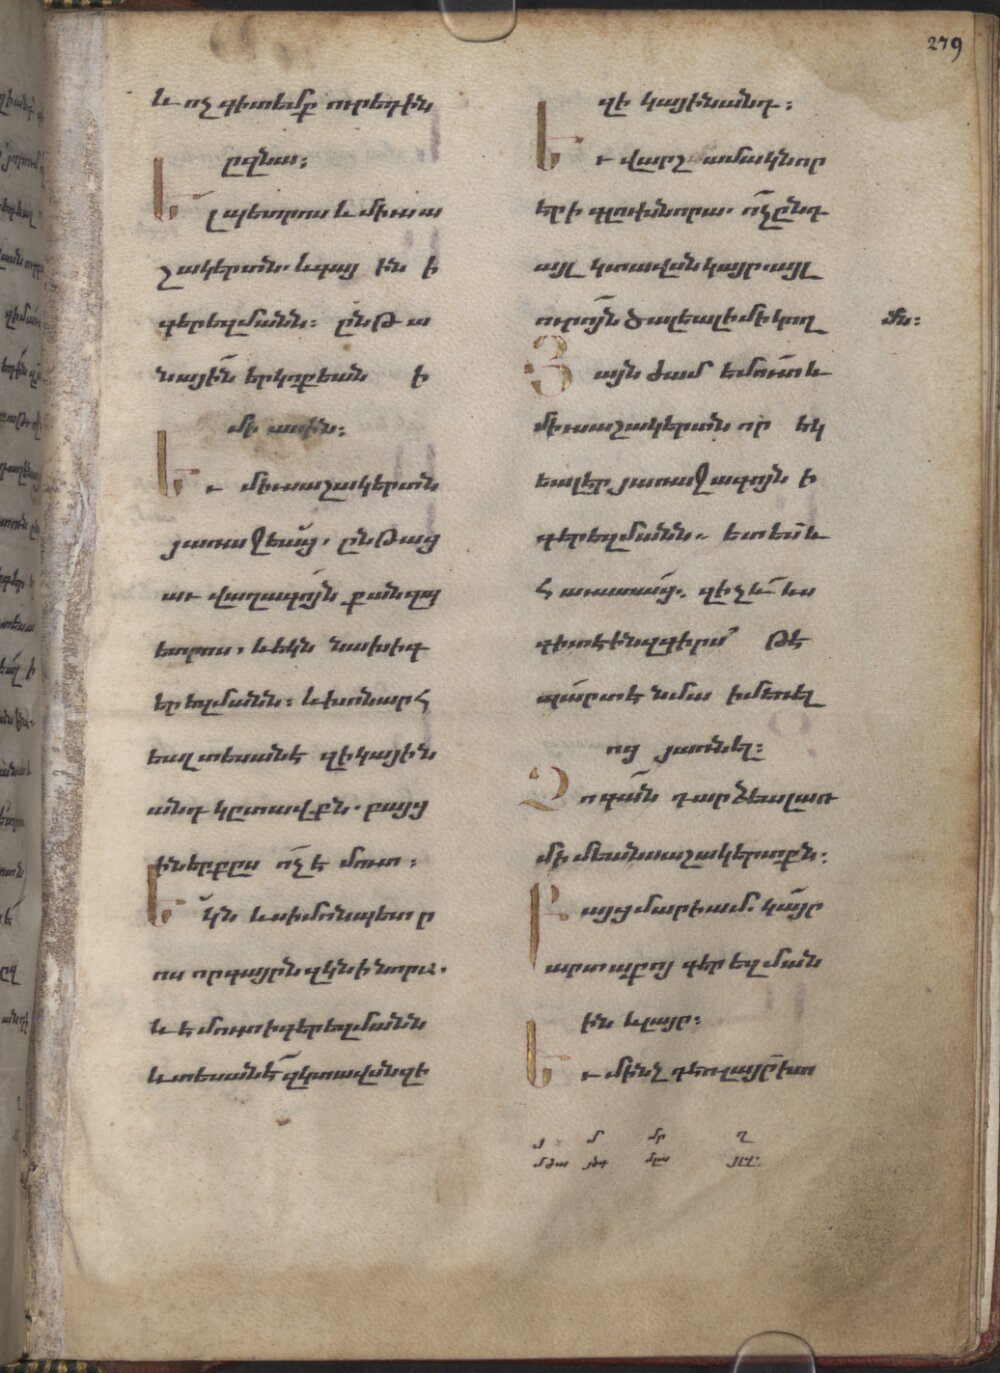 279
և ոչ գիտեմք ուր եդին
ըզնա։
Ել պետրոս և միւս ա
շակերտն. և գայ ին ի
գերեզմանն։ ընթ ա
նային երկոքեան ի
մի ասին։
Եւ միւս աշակերտն
յառաջեաց, ընթաց
աւ վաղագոյն քան զպ
ետրոս, և եկն նախ ի գ
երեզմանն։ և խոնարհ
եալ տեսանէ զի կային
անդ կըտավքն. բայց
ի ներքըս ոչ է մուտ։
Եկն և սիմոն պետ ր
ոս որ գայր ն զկնի նորա.
և եմուտ ի գերեզմանն
և տեսանէ զկտավսն զի
զի կային անդ։
Եւ վարշ ամակն որ
էր ի գլուխ նորա. ոչ ընդ
այլ կտավսն կայր. այլ
ուրոյն ծալեալ ի մի կող
մն։
Յայն ժամ եմուտ և
միւս աշակերտն որ եկ
եալ էր յառաջագոյն ի
գերեզմանն. ետես և
հաւատաց. զի չև ևս
գիտէին զգիրս՝ թէ
պարտ է նմա ի մեռել
ոց յառնել։
Չոգան դարձեալ առ
միմեանս աշակերտքն։
Բայց մարիամ. կայր
արտաքոյ գերեզման
ին և լայր։
Եւ մինչ դեռ լայր ետ